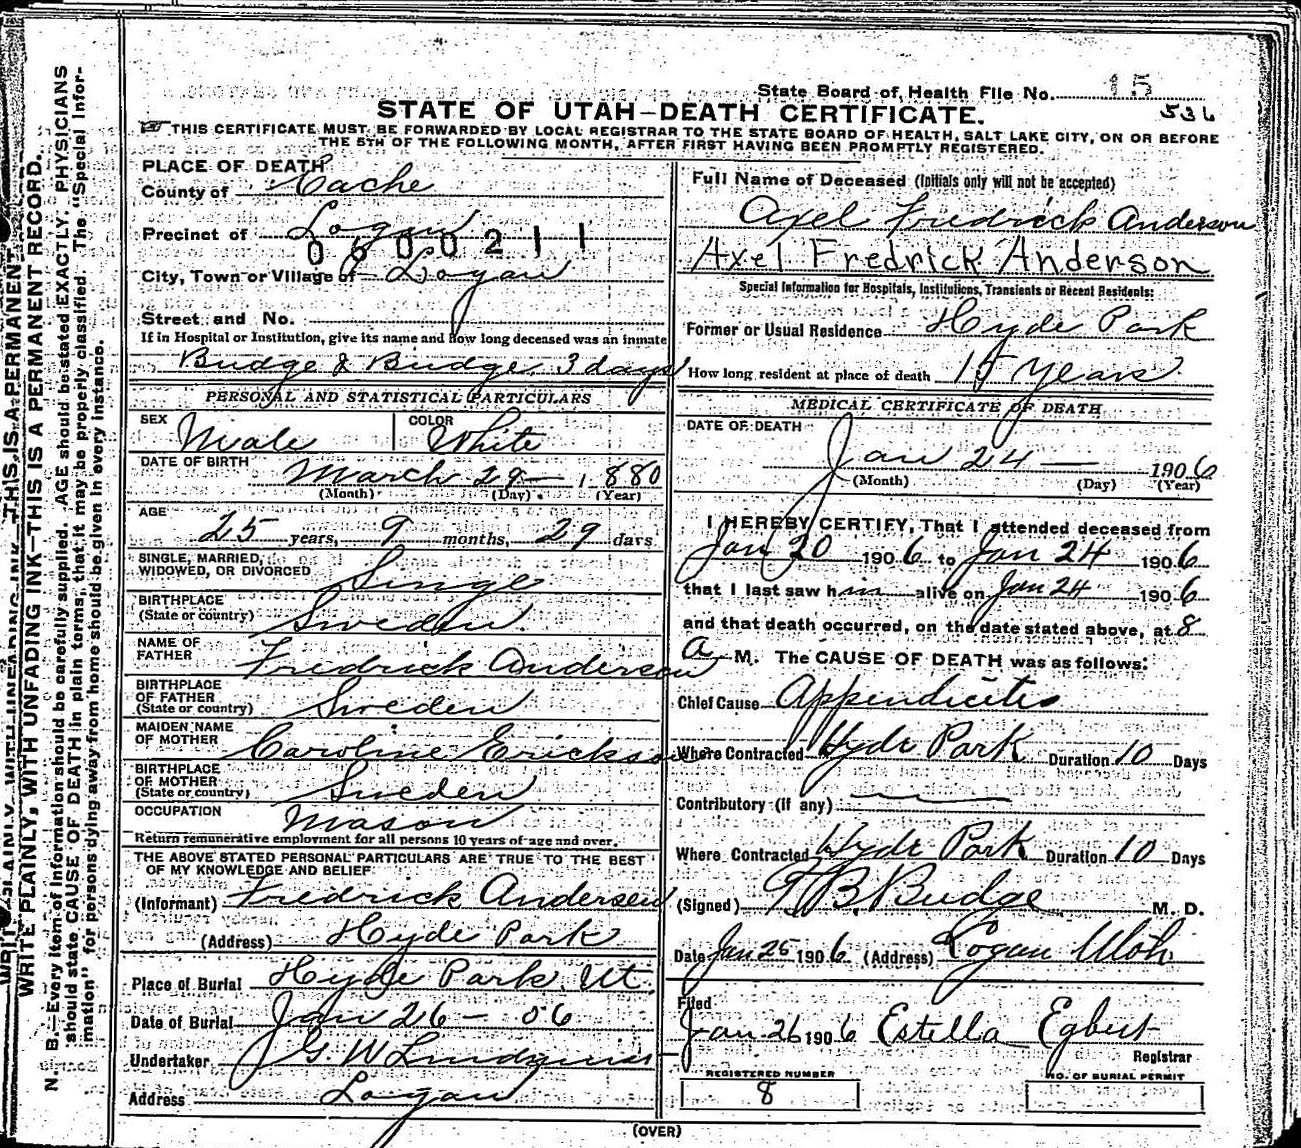 State Board of Health File No. 15
STATE OF UTAH—DEATH CERTIFICATE.
536
THIS CERTIFICATE MUST BE FORWARDED BY LOCAL REGISTRAR TO THE STATE BOARD OF HEALTH, SALT LAKE CITY, ON OR BEFORE
THE 5TH OF THE FOLLOWING MONTH, AFTER FIRST HAVING BEEN PROMPTLY REGISTERED.
PLACE OF DEATH
County of Cache
Precinct of Logan
0600211
City, Town or Village of Logan
Street and No.
If in Hospital or Institution, give its name and how long deceased was an inmate
Budge & Budge 3 days
PERSONAL AND STATISTICAL PARTICULARS
SEX Male COLOR White
DATE OF BIRTH March 29 1880
(Month) (Day) (Year)
AGE
25 years, 9 months, 29 days
SINGLE, MARRIED,
WIDOWED, OR DIVORCED Singe
BIRTHPLACE
(State or country) Sweden
NAME OF
FATHER Fredrick Anderson
BIRTHPLACE
OF FATHER
(State or country) Sweden
MAIDEN NAME
OF MOTHER Caroline Erickson
BIRTHPLACE
OF MOTHER
(State or country) Sweden
OCCUPATION Mason
Return remunerative employment for all persons 10 years of age and over.
THE ABOVE STATED PERSONAL PARTICULARS ARE TRUE TO THE BEST
OF MY KNOWLEDGE AND BELIEF
(Informant) Fredrick Andersen
(Address) Hyde Park
Place of Burial Hyde Park Ut.
Date of Burial Jan 26 - 06
Undertaker G. W. Lindquist
Address Logan
Full Name of Deceased (Initials only will not be accepted)
Axel Fredrick Anderson
Axel Fredrick Anderson
Special Information for Hospitals, Institutions, Transients or Recent Residents:
Former or Usual Residence Hyde Park
How long resident at place of death 15 years
MEDICAL CERTIFICATE OF DEATH
DATE OF DEATH
Jan 24 — 1906
(Month) (Day) (Year)
I HEREBY CERTIFY, That I attended deceased from
Jan 20 1906 to Jan 24 1906
that I last saw him alive on Jan 24 1906
and that death occurred, on the date stated above, at 8
a M. The CAUSE OF DEATH was as follows:
Chief Cause Appendicites
Where Contracted Hyde Park Duration 10 Days
Contributory (if any) —
Where Contracted Hyde Park Duration 10 Days
(Signed) T. B. Budge M. D.
Date Jan 25 1906 (Address) Logan Utah
Filed
Jan 26 1906 Estella Egbert
Registrar
REGISTERED NUMBER
8
NO. OF BURIAL PERMIT
(OVER)
WRITE PLAINLY, WITH UNFADING INK—THIS IS A PERMANENT RECORD.
N. B.—Every item of information should be carefully supplied. AGE should be stated EXACTLY. PHYSICIANS
should state CAUSE OF DEATH in plain terms, that it may be properly classified. The "Special Infor-
mation" for persons dying away from home should be given in every instance.